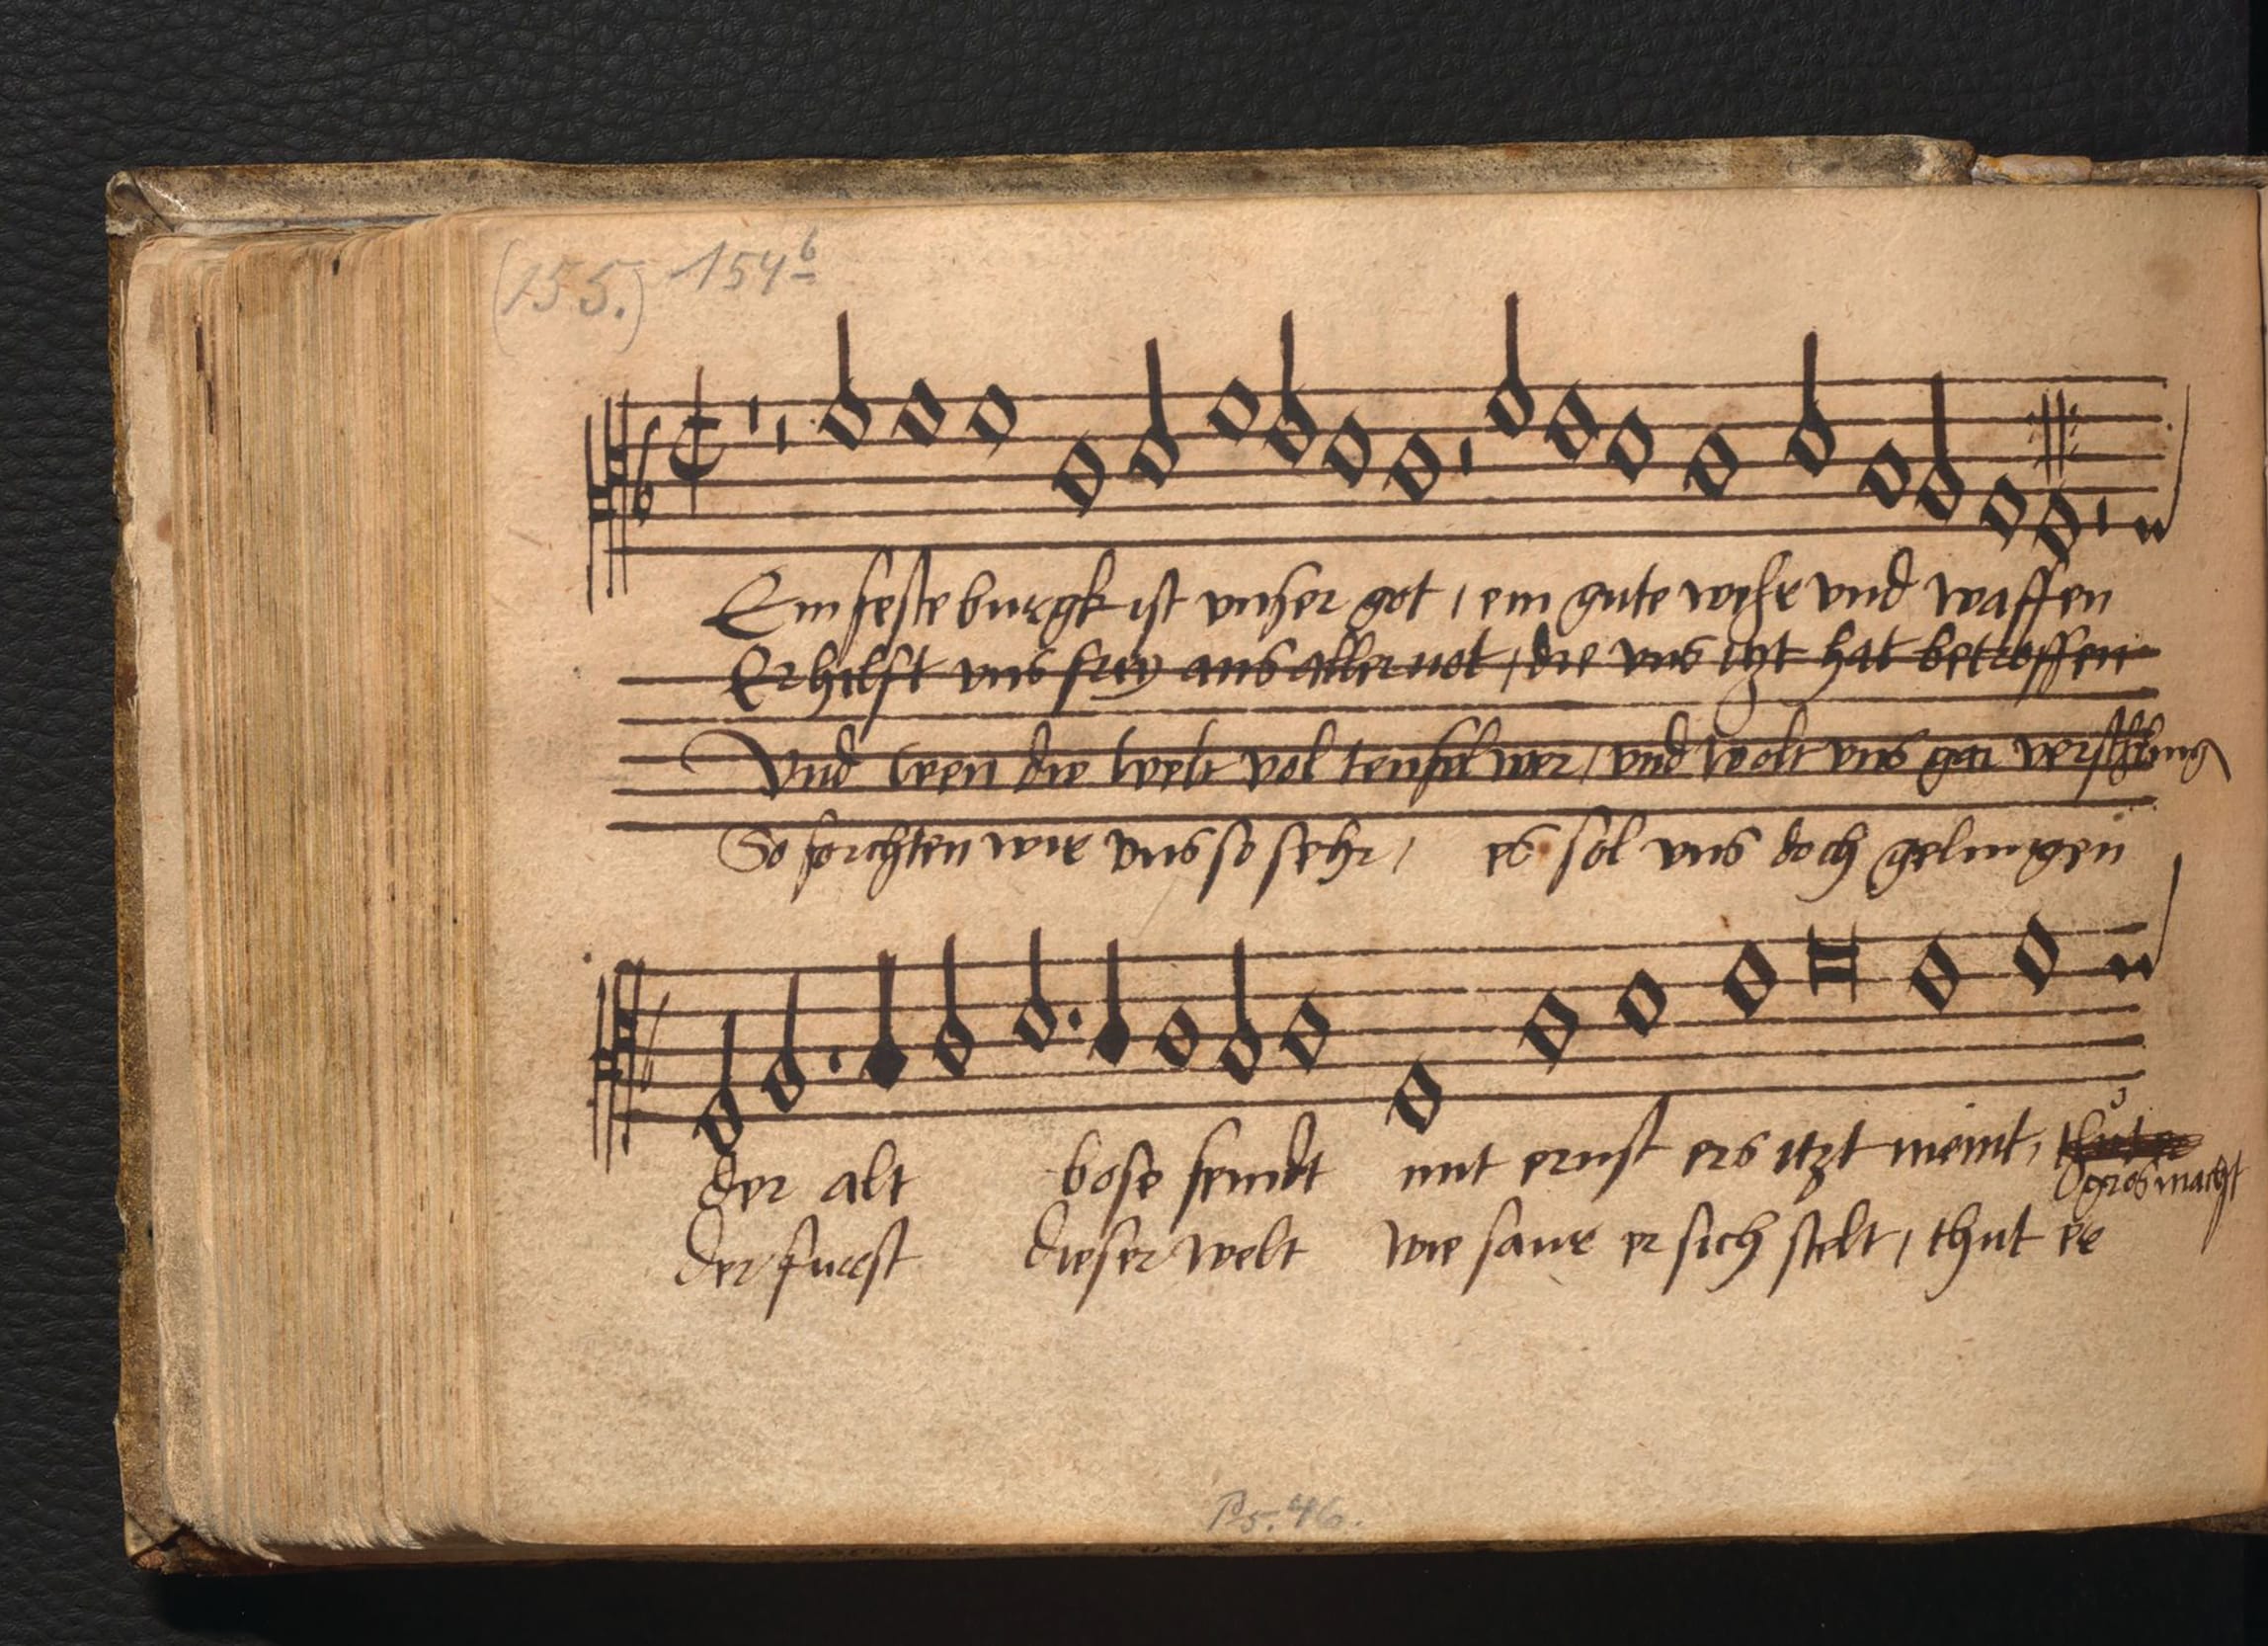 (155.) 154b
Ein feste burgk ist vnser got / ein gute wehr vnd waffen
Er hilfft vns frey aus aller not / die vns itzt hat betroffen
Vnd wen die welt vol teuffel wer / vnd wolt vns gar
So forchten wir vns so sehr / es sol vns doch gelingen
der alt bose feindt mit ernst ers itzt meint /
gros macht
der furst dieser welt wie saur er sich stelt / thut er
Ps. 46.